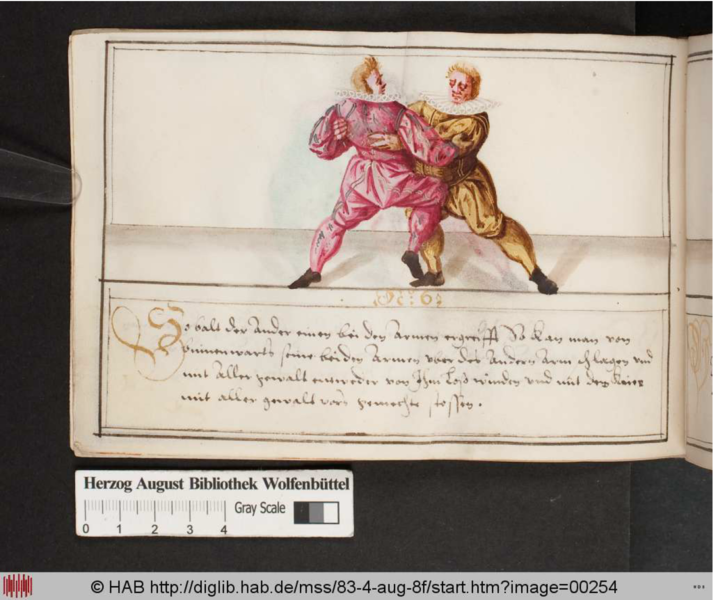 No: 61
So balt der Ander einen bei den Armen ergreifft So kan man von
binnenwarts seine beiden Armen vber des Anders Arm schlagen vnd
mit Aller gewalt entweder von Ihm loß winden vnd mit dem knie
mit aller gewalt vors gemechte stossen.
Herzog August Bibliothek Wolfenbüttel
Gray Scale
0 1 2 3 4
© HAB http://diglib.hab.de/mss/83-4-aug-8f/start.htm?image=00254